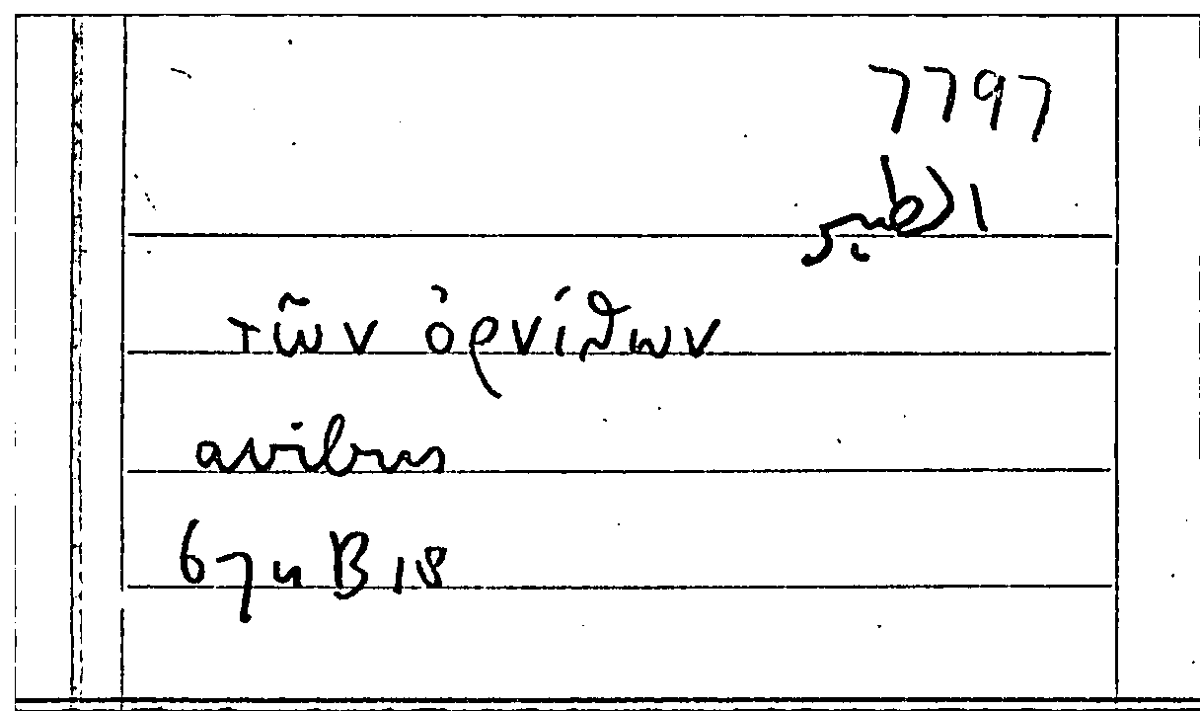 7797
الطير
τῶν ὀρνίθων
avibus
674 B 18